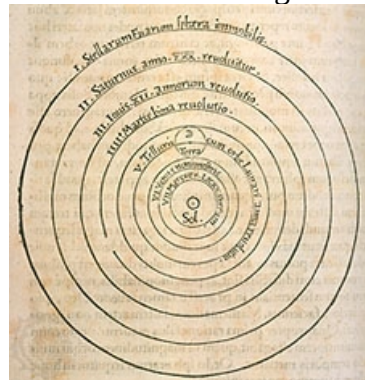 I. Stellarum Fixarum sphæra immobilis.
II. Saturnus anno. XXX. reuoluitur.
III. Iouis XII. annorum reuolutio.
IIII Martis bima reuolutio.
V. Telluris
cum orbe Lunari annua reuolutio
Terra
VI. Venus nonimestris
VII Mercurij. LXXX. dierum.
Sol.